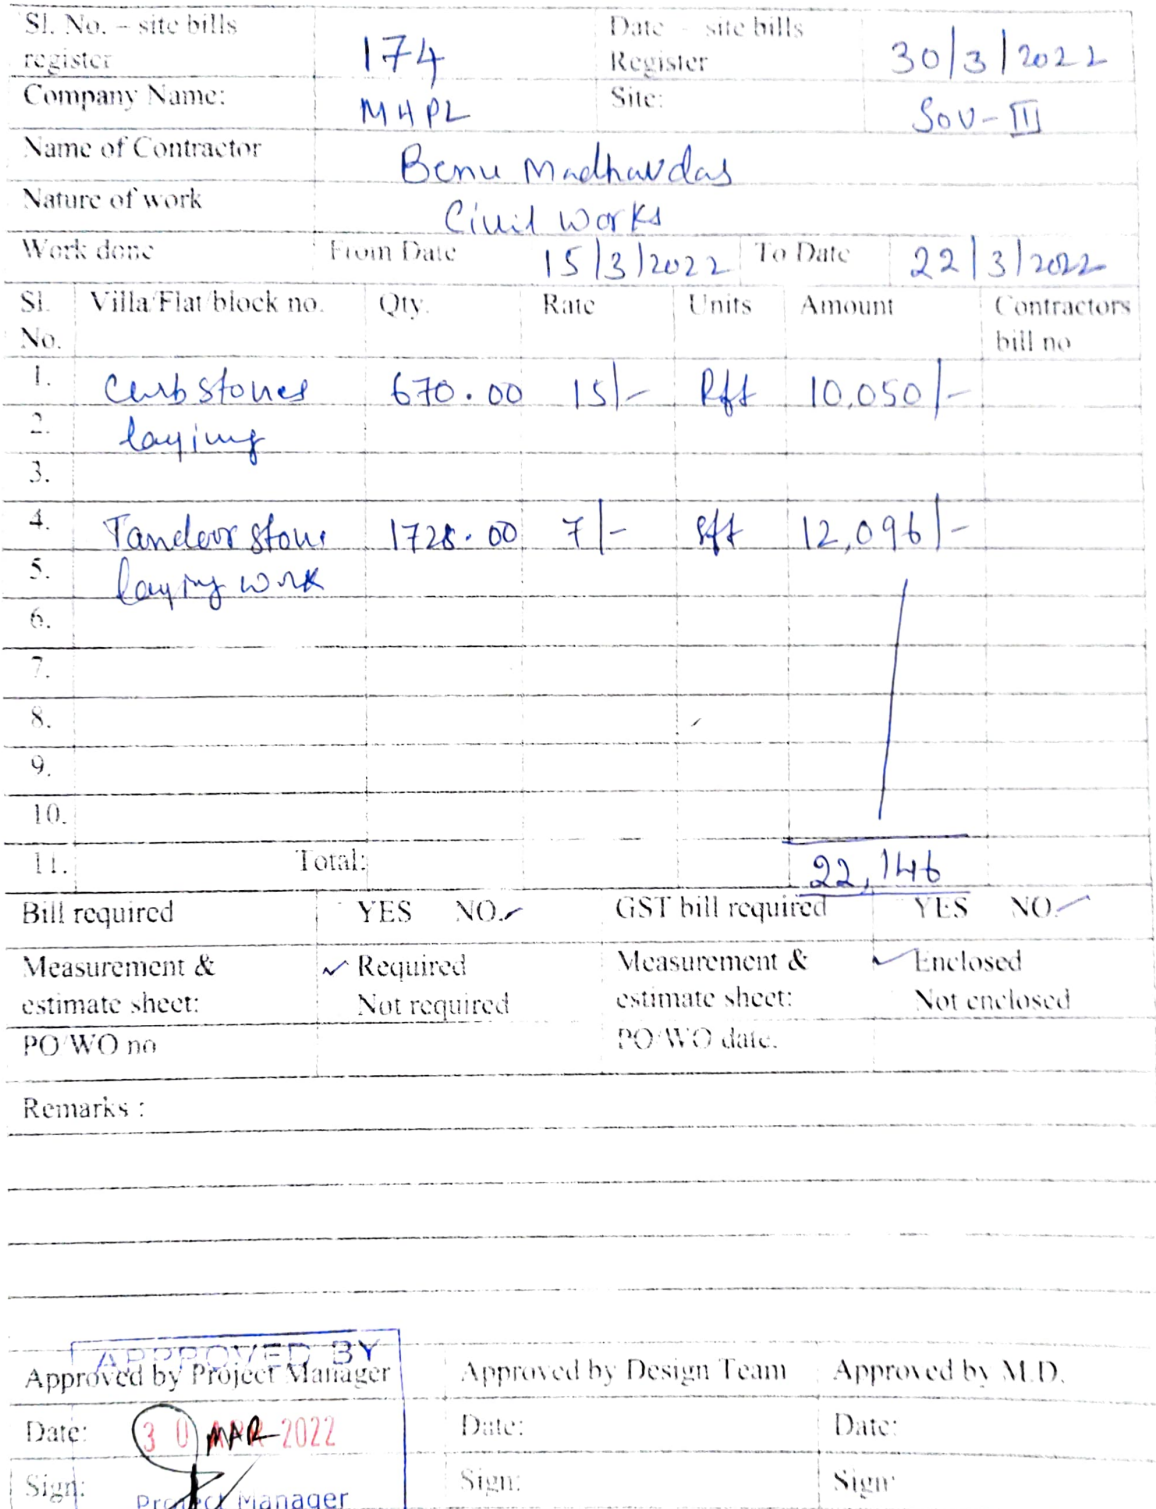 Sl. No. – site bills register 174 Date – site bills Register 30/3/2022
Company Name: MHPL Site: SOV-III
Name of Contractor Benu Madhavdas
Nature of work Civil works
Work done From Date 15/3/2022 To Date 22/3/2022
Sl. No. Villa/Flat/block no. Qty. Rate Units Amount Contractors bill no
1. Curb stones 670.00 15/- Rft 10,050/-
2. laying
3.
4. Tandoor stone 1728.00 7/- sft 12,096/-
5. laying work
6.
7.
8.
9.
10.
11. Total: 22,146
Bill required YES NO. GST bill required YES NO.
Measurement & estimate sheet: Required Not required Measurement & estimate sheet: Enclosed Not enclosed
PO/WO no PO/WO date.
Remarks :
APPROVED BY
Approved by Project Manager Approved by Design Team Approved by M.D.
Date: 30 MAR 2022 Date: Date:
Sign: Sign: Sign:
Project Manager